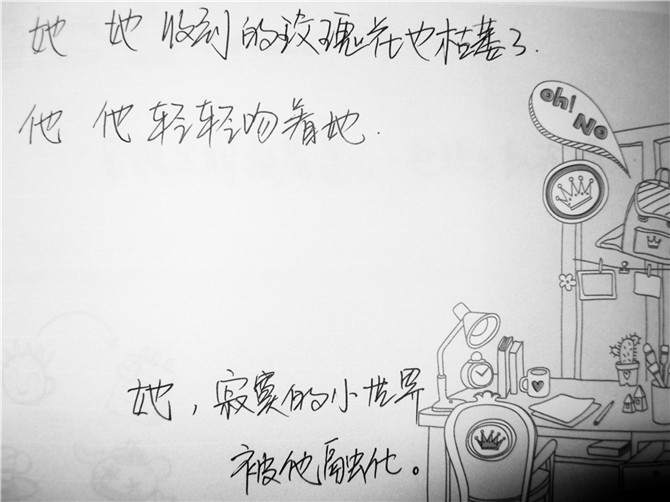 她 她收到的玫瑰花也枯萎了.
他 他轻轻吻着她.
oh!
No
她，寂寞的小世界
被他融化。